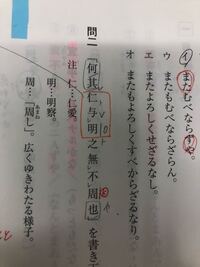 イ またむべならずや。
ウ またもむべならざらん。
エ またよろしくせざるなし。
オ またもよろしくすべからざるなり。
問二 「何其仁与明之無不周也」を書き
注 仁…仁愛。
明…明察。
周…「周し」。広くゆきわたる様子。